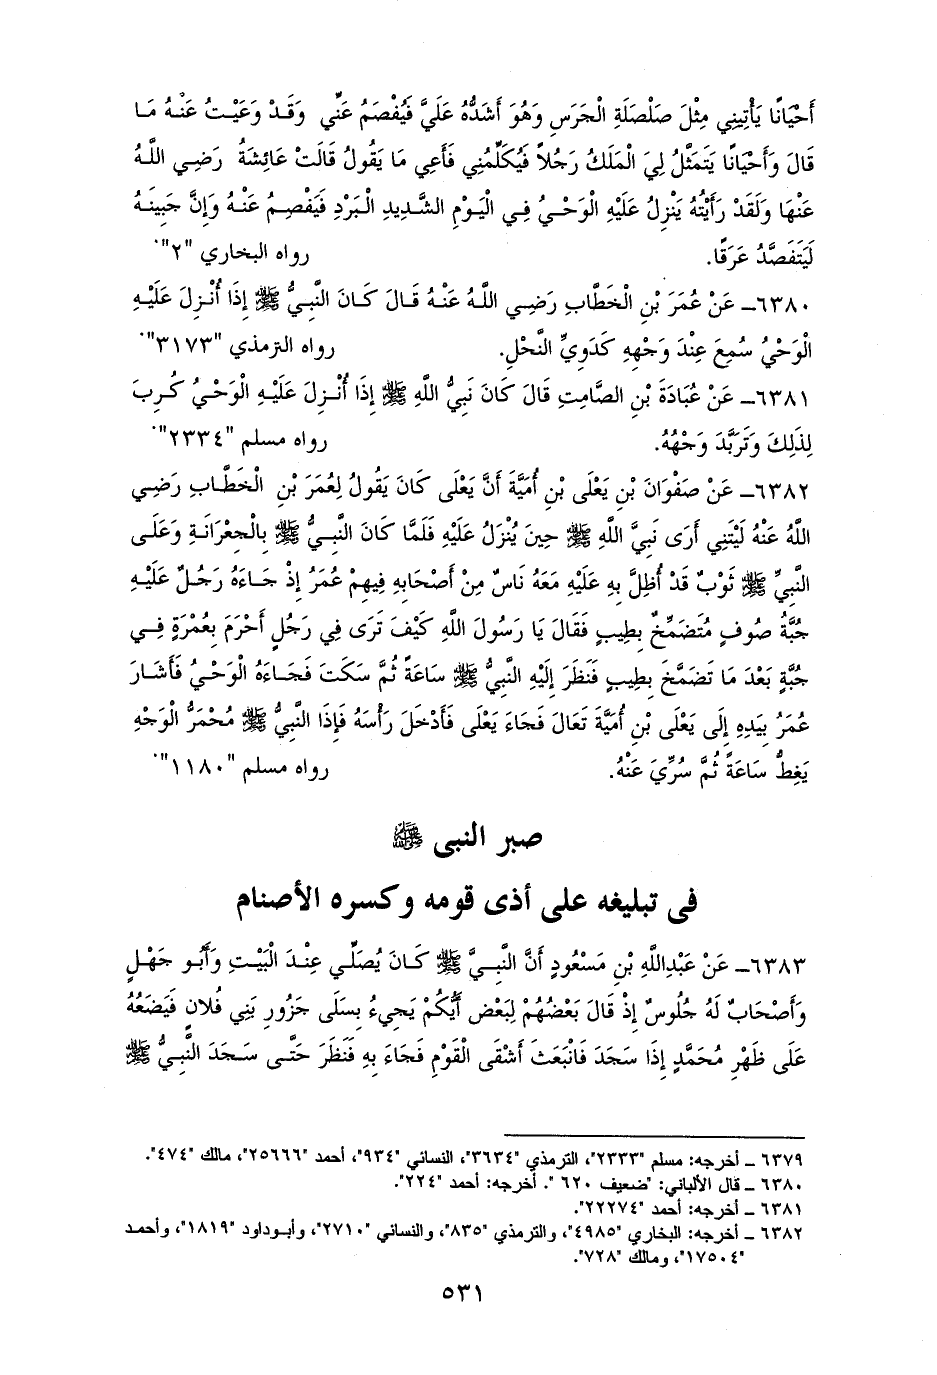 أَحْيَانًا يَأْتِينِي مِثْلَ صَلْصَلَةِ الْجَرَسِ وَهُوَ أَشَدُّهُ عَلَيَّ فَيُفْصَمُ عَنِّي وَقَدْ وَعَيْتُ عَنْهُ مَا
قَالَ وَأَحْيَانًا يَتَمَثَّلُ لِيَ الْمَلَكُ رَجُلاً فَيُكَلِّمُنِي فَأَعِي مَا يَقُولُ قَالَتْ عَائِشَةُ رَضِي اللَّهُ
عَنْهَا وَلَقَدْ رَأَيْتُهُ يَنْزِلُ عَلَيْهِ الْوَحْيُ فِي الْيَوْمِ الشَّدِيدِ الْبَرْدِ فَيَفْصِمُ عَنْهُ وَإِنَّ جَبِينَهُ
لَيَتَفَصَّدُ عَرَقًا. رواه البخاري "٢".
٦٣٨٠ــ عَنْ عُمَرَ بْنِ الْخَطَّابِ رَضِي اللَّهُ عَنْهُ قَالَ كَانَ النَّبِيُّ ﷺ إِذَا أُنْزِلَ عَلَيْهِ
الْوَحْيُ سُمِعَ عِنْدَ وَجْهِهِ كَدَوِيِّ النَّحْلِ. رواه الترمذي "٣١٧٣".
٦٣٨١ــ عَنْ عُبَادَةَ بْنِ الصَّامِتِ قَالَ كَانَ نَبِيُّ اللَّهِ ﷺ إِذَا أُنْزِلَ عَلَيْهِ الْوَحْيُ كُرِبَ
لِذَلِكَ وَتَرَبَّدَ وَجْهُهُ. رواه مسلم "٢٣٣٤".
٦٣٨٢ــ عَنْ صَفْوَانَ بْنِ يَعْلَى بْنِ أُمَيَّةَ أَنَّ يَعْلَى كَانَ يَقُولُ لِعُمَرَ بْنِ الْخَطَّابِ رَضِي
اللَّهُ عَنْهُ لَيْتَنِي أَرَى نَبِيَّ اللَّهِ ﷺ حِينَ يُنْزَلُ عَلَيْهِ فَلَمَّا كَانَ النَّبِيُّ ﷺ بِالْجِعْرَانَةِ وَعَلَى
النَّبِيِّ ﷺ ثَوْبٌ قَدْ أُظِلَّ بِهِ عَلَيْهِ مَعَهُ نَاسٌ مِنْ أَصْحَابِهِ فِيهِمْ عُمَرُ إِذْ جَاءَهُ رَجُلٌ عَلَيْهِ
جُبَّةُ صُوفٍ مُتَضَمِّخٌ بِطِيبٍ فَقَالَ يَا رَسُولَ اللَّهِ كَيْفَ تَرَى فِي رَجُلٍ أَحْرَمَ بِعُمْرَةٍ فِي
جُبَّةٍ بَعْدَ مَا تَضَمَّخَ بِطِيبٍ فَنَظَرَ إِلَيْهِ النَّبِيُّ ﷺ سَاعَةً ثُمَّ سَكَتَ فَجَاءَهُ الْوَحْيُ فَأَشَارَ
عُمَرُ بِيَدِهِ إِلَى يَعْلَى بْنِ أُمَيَّةَ تَعَالَ فَجَاءَ يَعْلَى فَأَدْخَلَ رَأْسَهُ فَإِذَا النَّبِيُّ ﷺ مُحْمَرُّ الْوَجْهِ
يَغِطُّ سَاعَةً ثُمَّ سُرِّيَ عَنْهُ. رواه مسلم "١١٨٠".
صبر النبى ﷺ
فى تبليغه على أذى قومه وكسره الأصنام
٦٣٨٣ــ عَنْ عَبْدِاللَّهِ بْنِ مَسْعُودٍ أَنَّ النَّبِيَّ ﷺ كَانَ يُصَلِّي عِنْدَ الْبَيْتِ وَأَبُو جَهْلٍ
وَأَصْحَابٌ لَهُ جُلُوسٌ إِذْ قَالَ بَعْضُهُمْ لِبَعْضٍ أَيُّكُمْ يَجِيءُ بِسَلَى جَزُورِ بَنِي فُلَانٍ فَيَضَعُهُ
عَلَى ظَهْرِ مُحَمَّدٍ إِذَا سَجَدَ فَانْبَعَثَ أَشْقَى الْقَوْمِ فَجَاءَ بِهِ فَنَظَرَ حَتَّى سَجَدَ النَّبِيُّ ﷺ
٦٣٧٩ ــ أخرجه: مسلم "٢٣٣٣"، الترمذي "٣٦٣٤"، النسائي "٩٣٤"، أحمد "٢٥٦٦٦"، مالك "٤٧٤".
٦٣٨٠ ــ قال الألباني: "ضعيف ٦٢٠ ". أخرجه: أحمد "٢٢٤".
٦٣٨١ ــ أخرجه: أحمد "٢٢٢٧٤".
٦٣٨٢ ــ أخرجه: البخاري "٤٩٨٥"، والترمذي "٨٣٥"، والنسائي "٢٧١٠"، وأبوداود "١٨١٩"، وأحمد
"١٧٥٠٤"، ومالك "٧٢٨".
٥٣١